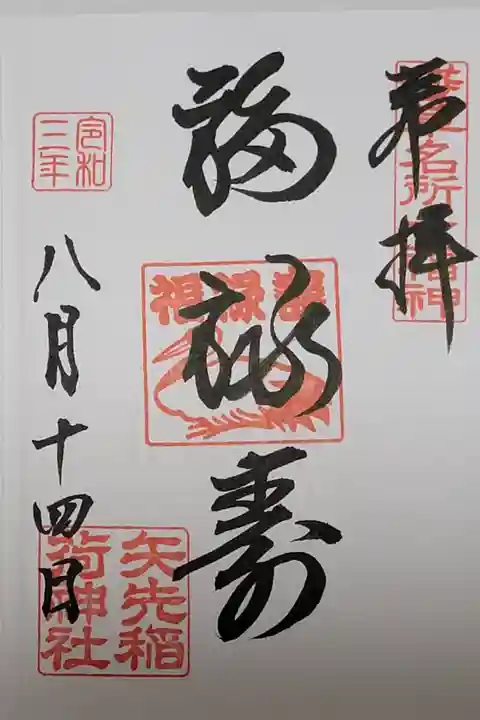 奉拝
浅草名所七福神
福禄寿
令和三年
八月十四日
矢先稲荷神社